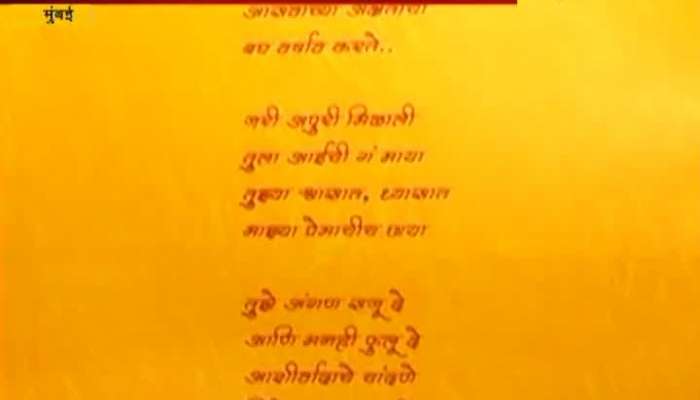 मुंबई
आसवांच्या अक्षतांचा
बघ वर्षाव करते..
जरी अपुरी मिळाली
तुला आईची गं माया
तुझ्या श्वासात, ध्यासात
माझ्या प्रेमाचीच छाया
तुझे अंगण सजू दे
आणि मनही फुलू दे
आशीर्वादाचे चांदणे